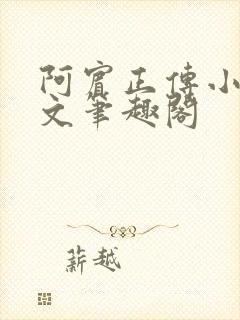 阿賓正傳小
文筆趣閣
薪越